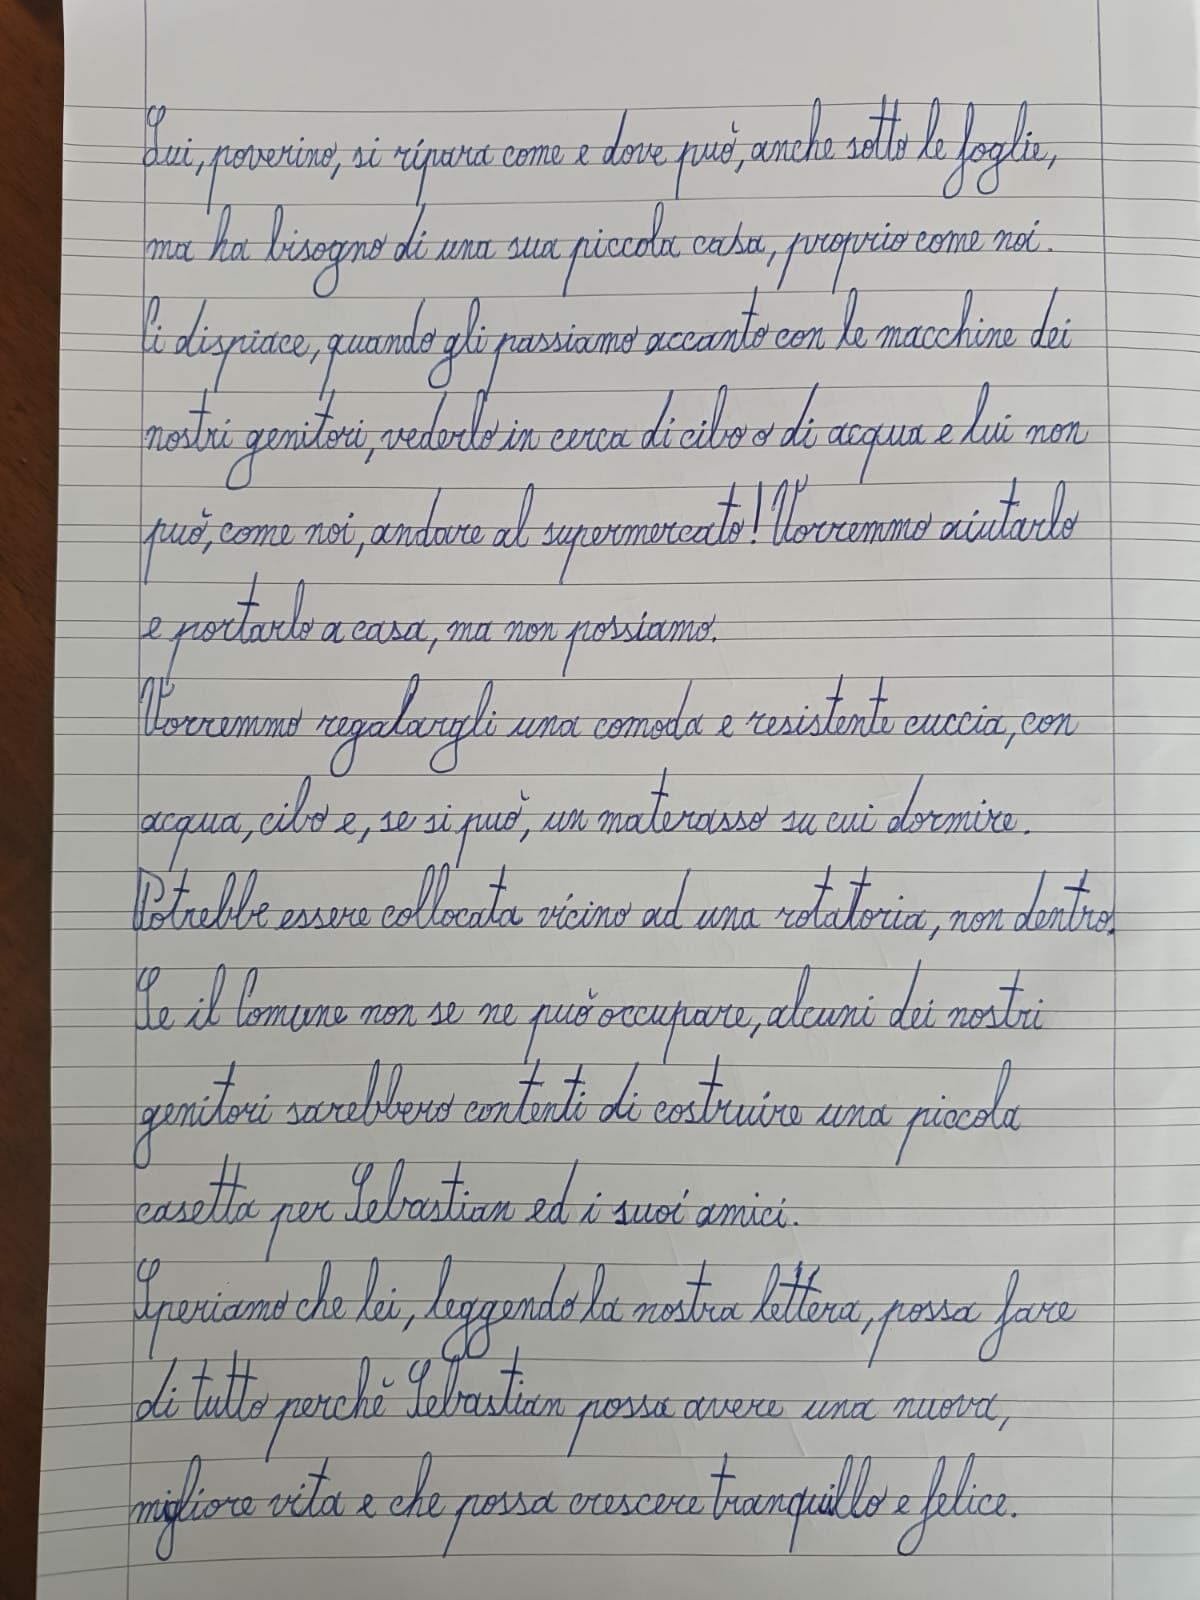 Lui, poverino, si ripara come e dove può, anche sotto le foglie,
ma ha bisogno di una sua piccola casa, proprio come noi.
Ci dispiace, quando gli passiamo accanto con le macchine dei
nostri genitori, vederlo in cerca di cibo o di acqua e lui non
può, come noi, andare al supermercato! Vorremmo aiutarlo
e portarlo a casa, ma non possiamo.
Vorremmo regalargli una comoda e resistente cuccia, con
acqua, cibo e, se si può, un materasso su cui dormire.
Potrebbe essere collocata vicino ad una rotatoria, non dentro.
Se il Comune non se ne può occupare, alcuni dei nostri
genitori sarebbero contenti di costruire una piccola
casetta per Sebastian ed i suoi amici.
Speriamo che lei, leggendo la nostra lettera, possa fare
di tutto perchè Sebastian possa avere una nuova,
migliore vita e che possa crescere tranquillo e felice.